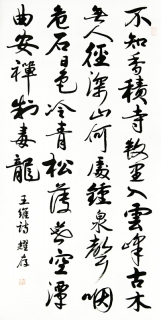 不知香積寺數里入雲峰古木
無人徑深山何處鐘泉聲咽
危石日色冷青松薄暮空潭
曲安禪制毒龍
王維詩 耀存